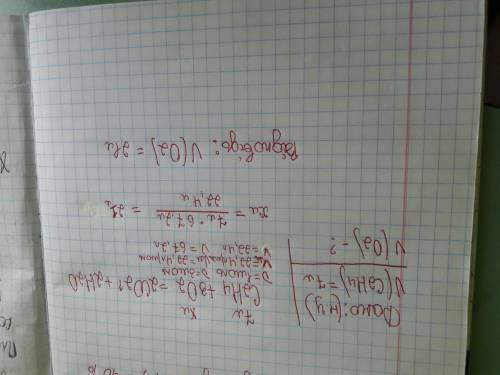 Дано: (н.у)
V(C2H4) = 7л
V(O2) - ?
7л xл
C2H4 + 3O2 = 2CO2↑ + 2H2O
V=22,4л/моль V=22,4л/моль
V=22,4л V=67,2л
xл = 7л · 67,2л / 22,4л = 21л
Відповідь: V(O2) = 21л